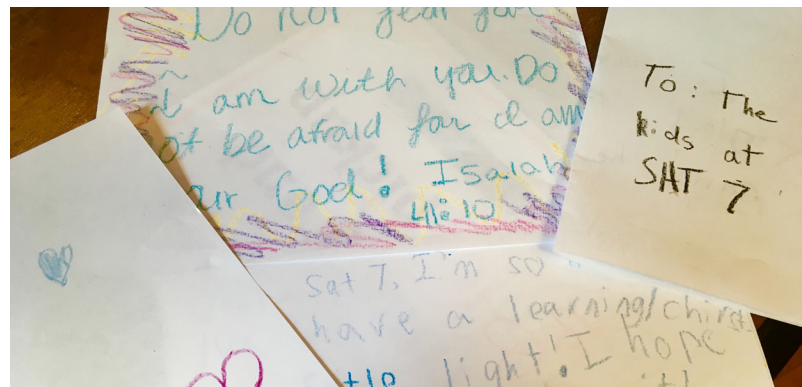 Do not fear for
I am with you. Do
ot be afraid for I am
ur God! Isaiah
41:10
To: The
kids at
SAT 7
Sat 7, I'm so
have a learning/chirst
light! I hope